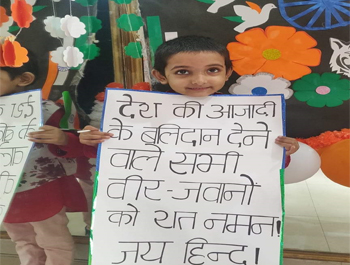 देश की आजादी
के बलिदान देने
वाले सभी
वीर-जवानों
को शत नमन!
जय हिन्द!